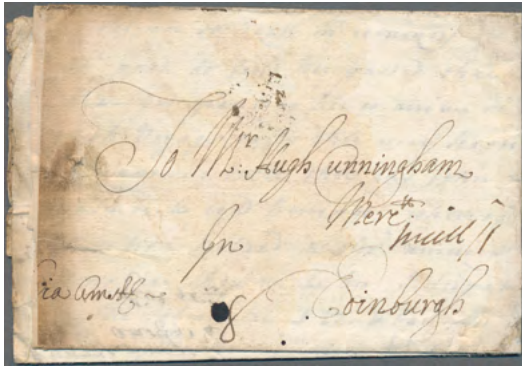 To Mr: Hugh Cunningham
Merctt
In
Edinburgh
via Amstd
8